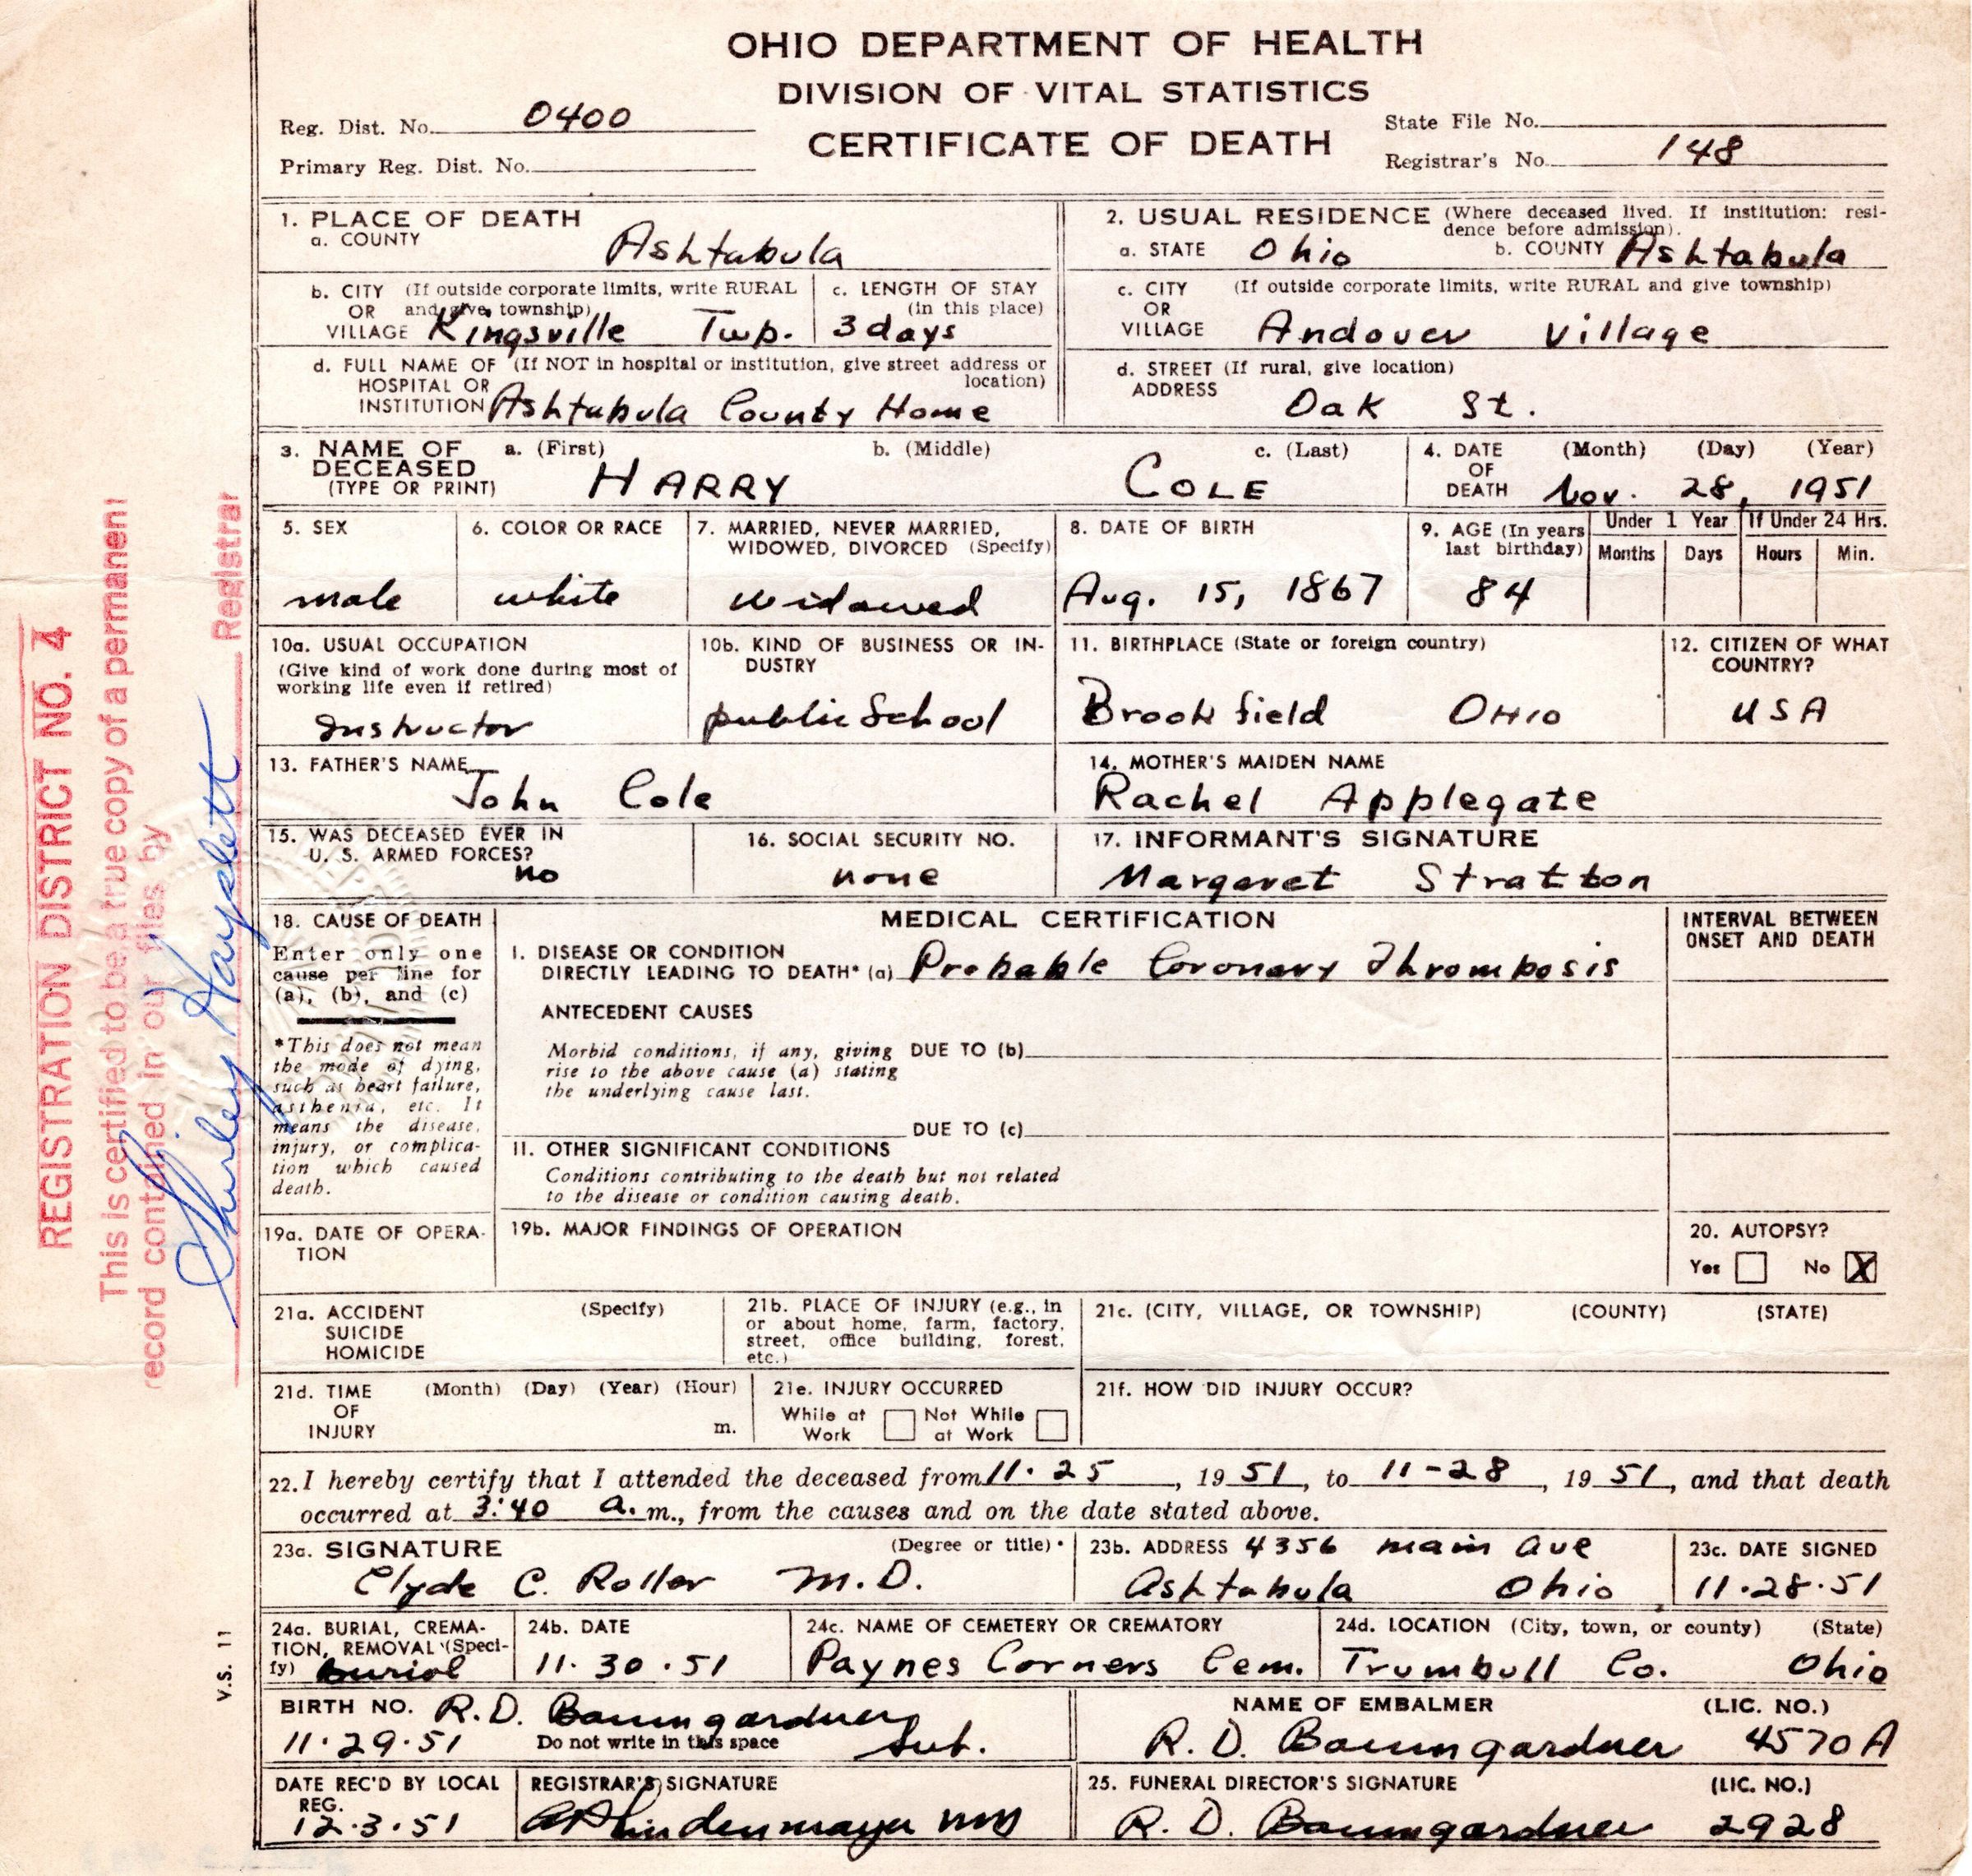 OHIO DEPARTMENT OF HEALTH
DIVISION OF VITAL STATISTICS
CERTIFICATE OF DEATH
Reg. Dist. No. 0400
Primary Reg. Dist. No.
State File No.
Registrar's No. 148
1. PLACE OF DEATH
a. COUNTY Ashtabula
b. CITY (If outside corporate limits, write RURAL
OR and give township)
VILLAGE Kingsville Twp.
c. LENGTH OF STAY
(in this place)
3 days
d. FULL NAME OF (If NOT in hospital or institution, give street address or
HOSPITAL OR location)
INSTITUTION Ashtabula County Home
2. USUAL RESIDENCE (Where deceased lived. If institution: resi-
dence before admission).
a. STATE Ohio b. COUNTY Ashtabula
c. CITY (If outside corporate limits, write RURAL and give township)
OR
VILLAGE Andover Village
d. STREET (If rural, give location)
ADDRESS Oak St.
3. NAME OF a. (First) b. (Middle) c. (Last)
DECEASED
(TYPE OR PRINT) HARRY COLE
4. DATE (Month) (Day) (Year)
OF
DEATH Nov. 28, 1951
5. SEX
male
6. COLOR OR RACE
white
7. MARRIED, NEVER MARRIED,
WIDOWED, DIVORCED (Specify)
widowed
8. DATE OF BIRTH
Aug. 15, 1867
9. AGE (In years
last birthday)
84
Under 1 Year
Months Days
If Under 24 Hrs.
Hours Min.
10a. USUAL OCCUPATION
(Give kind of work done during most of
working life even if retired)
Instructor
10b. KIND OF BUSINESS OR IN-
DUSTRY
public School
11. BIRTHPLACE (State or foreign country)
Brookfield OHIO
12. CITIZEN OF WHAT
COUNTRY?
USA
13. FATHER'S NAME
John Cole
14. MOTHER'S MAIDEN NAME
Rachel Applegate
15. WAS DECEASED EVER IN
U. S. ARMED FORCES?
no
16. SOCIAL SECURITY NO.
none
17. INFORMANT'S SIGNATURE
Margaret Stratton
18. CAUSE OF DEATH
Enter only one
cause per line for
(a), (b), and (c)
*This does not mean
the mode of dying,
such as heart failure,
asthenia, etc. It
means the disease,
injury, or complica-
tion which caused
death.
MEDICAL CERTIFICATION
I. DISEASE OR CONDITION
DIRECTLY LEADING TO DEATH* (a) Probable Coronary Thrombosis
ANTECEDENT CAUSES
Morbid conditions, if any, giving DUE TO (b)
rise to the above cause (a) stating
the underlying cause last.
DUE TO (c)
II. OTHER SIGNIFICANT CONDITIONS
Conditions contributing to the death but not related
to the disease or condition causing death.
INTERVAL BETWEEN
ONSET AND DEATH
19a. DATE OF OPERA-
TION
19b. MAJOR FINDINGS OF OPERATION
20. AUTOPSY?
Yes No X
21a. ACCIDENT (Specify)
SUICIDE
HOMICIDE
21b. PLACE OF INJURY (e.g., in
or about home, farm, factory,
street, office building, forest,
etc.)
21c. (CITY, VILLAGE, OR TOWNSHIP) (COUNTY) (STATE)
21d. TIME (Month) (Day) (Year) (Hour)
OF
INJURY m.
21e. INJURY OCCURRED
While at Not While
Work at Work
21f. HOW DID INJURY OCCUR?
22. I hereby certify that I attended the deceased from 11-25, 1951, to 11-28, 1951, and that death
occurred at 3:40 a. m., from the causes and on the date stated above.
23a. SIGNATURE (Degree or title)
Clyde C. Roller M.D.
23b. ADDRESS 4356 main ave
Ashtabula Ohio
23c. DATE SIGNED
11.28.51
24a. BURIAL, CREMA-
TION, REMOVAL (Speci-
fy) burial
24b. DATE
11.30.51
24c. NAME OF CEMETERY OR CREMATORY
Paynes Corners Cem.
24d. LOCATION (City, town, or county) (State)
Trumbull Co. Ohio
BIRTH NO. R.D. Baumgardner
11.29.51 Do not write in this space Sub.
NAME OF EMBALMER (LIC. NO.)
R. D. Baumgardner 4570A
DATE REC'D BY LOCAL
REG.
12.3.51
REGISTRAR'S SIGNATURE
25. FUNERAL DIRECTOR'S SIGNATURE (LIC. NO.)
R. D. Baumgardner 2928
V.S. 11
REGISTRATION DISTRICT NO. 4
This is certified to be a true copy of a permanent
record contained in our files by
Shirley Haylett
Registrar